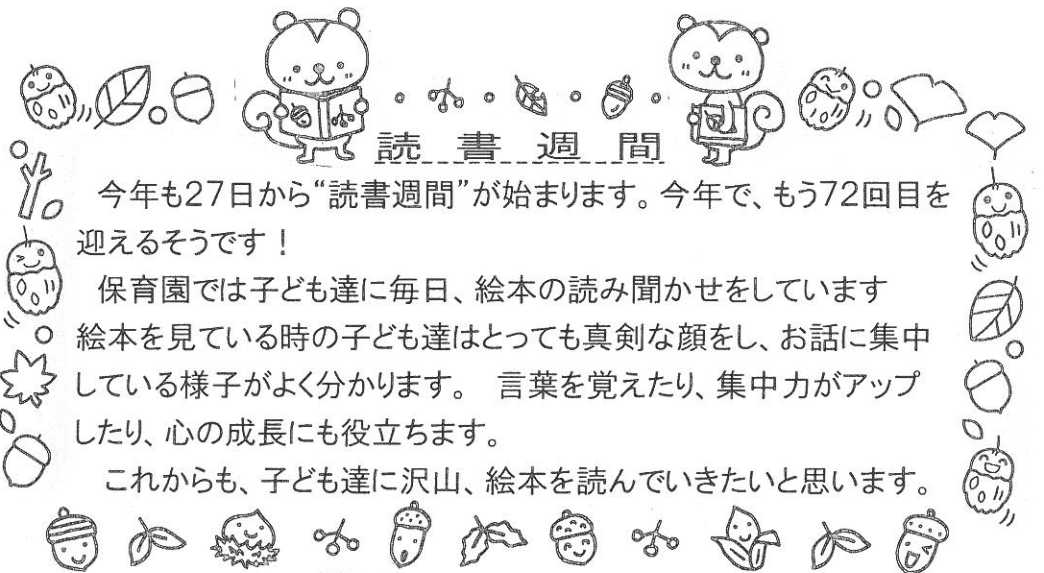 読書週間
今年も27日から“読書週間”が始まります。今年で、もう72回目を
迎えるそうです！
保育園では子ども達に毎日、絵本の読み聞かせをしています
絵本を見ている時の子ども達はとっても真剣な顔をし、お話に集中
している様子がよく分かります。　言葉を覚えたり、集中力がアップ
したり、心の成長にも役立ちます。
これからも、子ども達に沢山、絵本を読んでいきたいと思います。